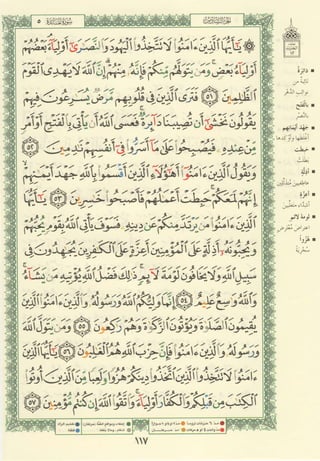 الجزء السادس
سورة المائدة ٥
يَـٰٓأَيُّهَا ٱلَّذِينَ ءَامَنُوا۟ لَا تَتَّخِذُوا۟ ٱلْيَهُودَ وَٱلنَّصَـٰرَىٰٓ أَوْلِيَآءَ ۘ بَعْضُهُمْ
أَوْلِيَآءُ بَعْضٍ ۚ وَمَن يَتَوَلَّهُم مِّنكُمْ فَإِنَّهُۥ مِنْهُمْ ۗ إِنَّ ٱللَّهَ لَا يَهْدِى ٱلْقَوْمَ
ٱلظَّـٰلِمِينَ ﴿٥١﴾ فَتَرَى ٱلَّذِينَ فِى قُلُوبِهِم مَّرَضٌ يُسَـٰرِعُونَ فِيهِمْ
يَقُولُونَ نَخْشَىٰٓ أَن تُصِيبَنَا دَآئِرَةٌ ۚ فَعَسَى ٱللَّهُ أَن يَأْتِىَ بِٱلْفَتْحِ أَوْ أَمْرٍ
مِّنْ عِندِهِۦ فَيُصْبِحُوا۟ عَلَىٰ مَآ أَسَرُّوا۟ فِىٓ أَنفُسِهِمْ نَـٰدِمِينَ ﴿٥٢﴾
وَيَقُولُ ٱلَّذِينَ ءَامَنُوٓا۟ أَهَـٰٓؤُلَآءِ ٱلَّذِينَ أَقْسَمُوا۟ بِٱللَّهِ جَهْدَ أَيْمَـٰنِهِمْ ۙ
إِنَّهُمْ لَمَعَكُمْ ۚ حَبِطَتْ أَعْمَـٰلُهُمْ فَأَصْبَحُوا۟ خَـٰسِرِينَ ﴿٥٣﴾ يَـٰٓأَيُّهَا
ٱلَّذِينَ ءَامَنُوا۟ مَن يَرْتَدَّ مِنكُمْ عَن دِينِهِۦ فَسَوْفَ يَأْتِى ٱللَّهُ بِقَوْمٍ يُحِبُّهُمْ
وَيُحِبُّونَهُۥٓ أَذِلَّةٍ عَلَى ٱلْمُؤْمِنِينَ أَعِزَّةٍ عَلَى ٱلْكَـٰفِرِينَ يُجَـٰهِدُونَ فِى
سَبِيلِ ٱللَّهِ وَلَا يَخَافُونَ لَوْمَةَ لَآئِمٍ ۚ ذَٰلِكَ فَضْلُ ٱللَّهِ يُؤْتِيهِ مَن يَشَآءُ ۚ
وَٱللَّهُ وَٰسِعٌ عَلِيمٌ ﴿٥٤﴾ إِنَّمَا وَلِيُّكُمُ ٱللَّهُ وَرَسُولُهُۥ وَٱلَّذِينَ ءَامَنُوا۟ ٱلَّذِينَ
يُقِيمُونَ ٱلصَّلَوٰةَ وَيُؤْتُونَ ٱلزَّكَوٰةَ وَهُمْ رَٰكِعُونَ ﴿٥٥﴾ وَمَن يَتَوَلَّ ٱللَّهَ
وَرَسُولَهُۥ وَٱلَّذِينَ ءَامَنُوا۟ فَإِنَّ حِزْبَ ٱللَّهِ هُمُ ٱلْغَـٰلِبُونَ ﴿٥٦﴾ يَـٰٓأَيُّهَا ٱلَّذِينَ
ءَامَنُوا۟ لَا تَتَّخِذُوا۟ ٱلَّذِينَ ٱتَّخَذُوا۟ دِينَكُمْ هُزُوًا وَلَعِبًا مِّنَ ٱلَّذِينَ أُوتُوا۟
ٱلْكِتَـٰبَ مِن قَبْلِكُمْ وَٱلْكُفَّارَ أَوْلِيَآءَ ۚ وَٱتَّقُوا۟ ٱللَّهَ إِن كُنتُم مُّؤْمِنِينَ ﴿٥٧﴾
دَائِرَةٌ
بِالفَتْحِ
جَهْدَ أَيْمَانِهِمْ
حَبِطَتْ
أَذِلَّةٍ
أَعِزَّةٍ
لَوْمَةَ لَائِمٍ
هُزُوًا
١١٧